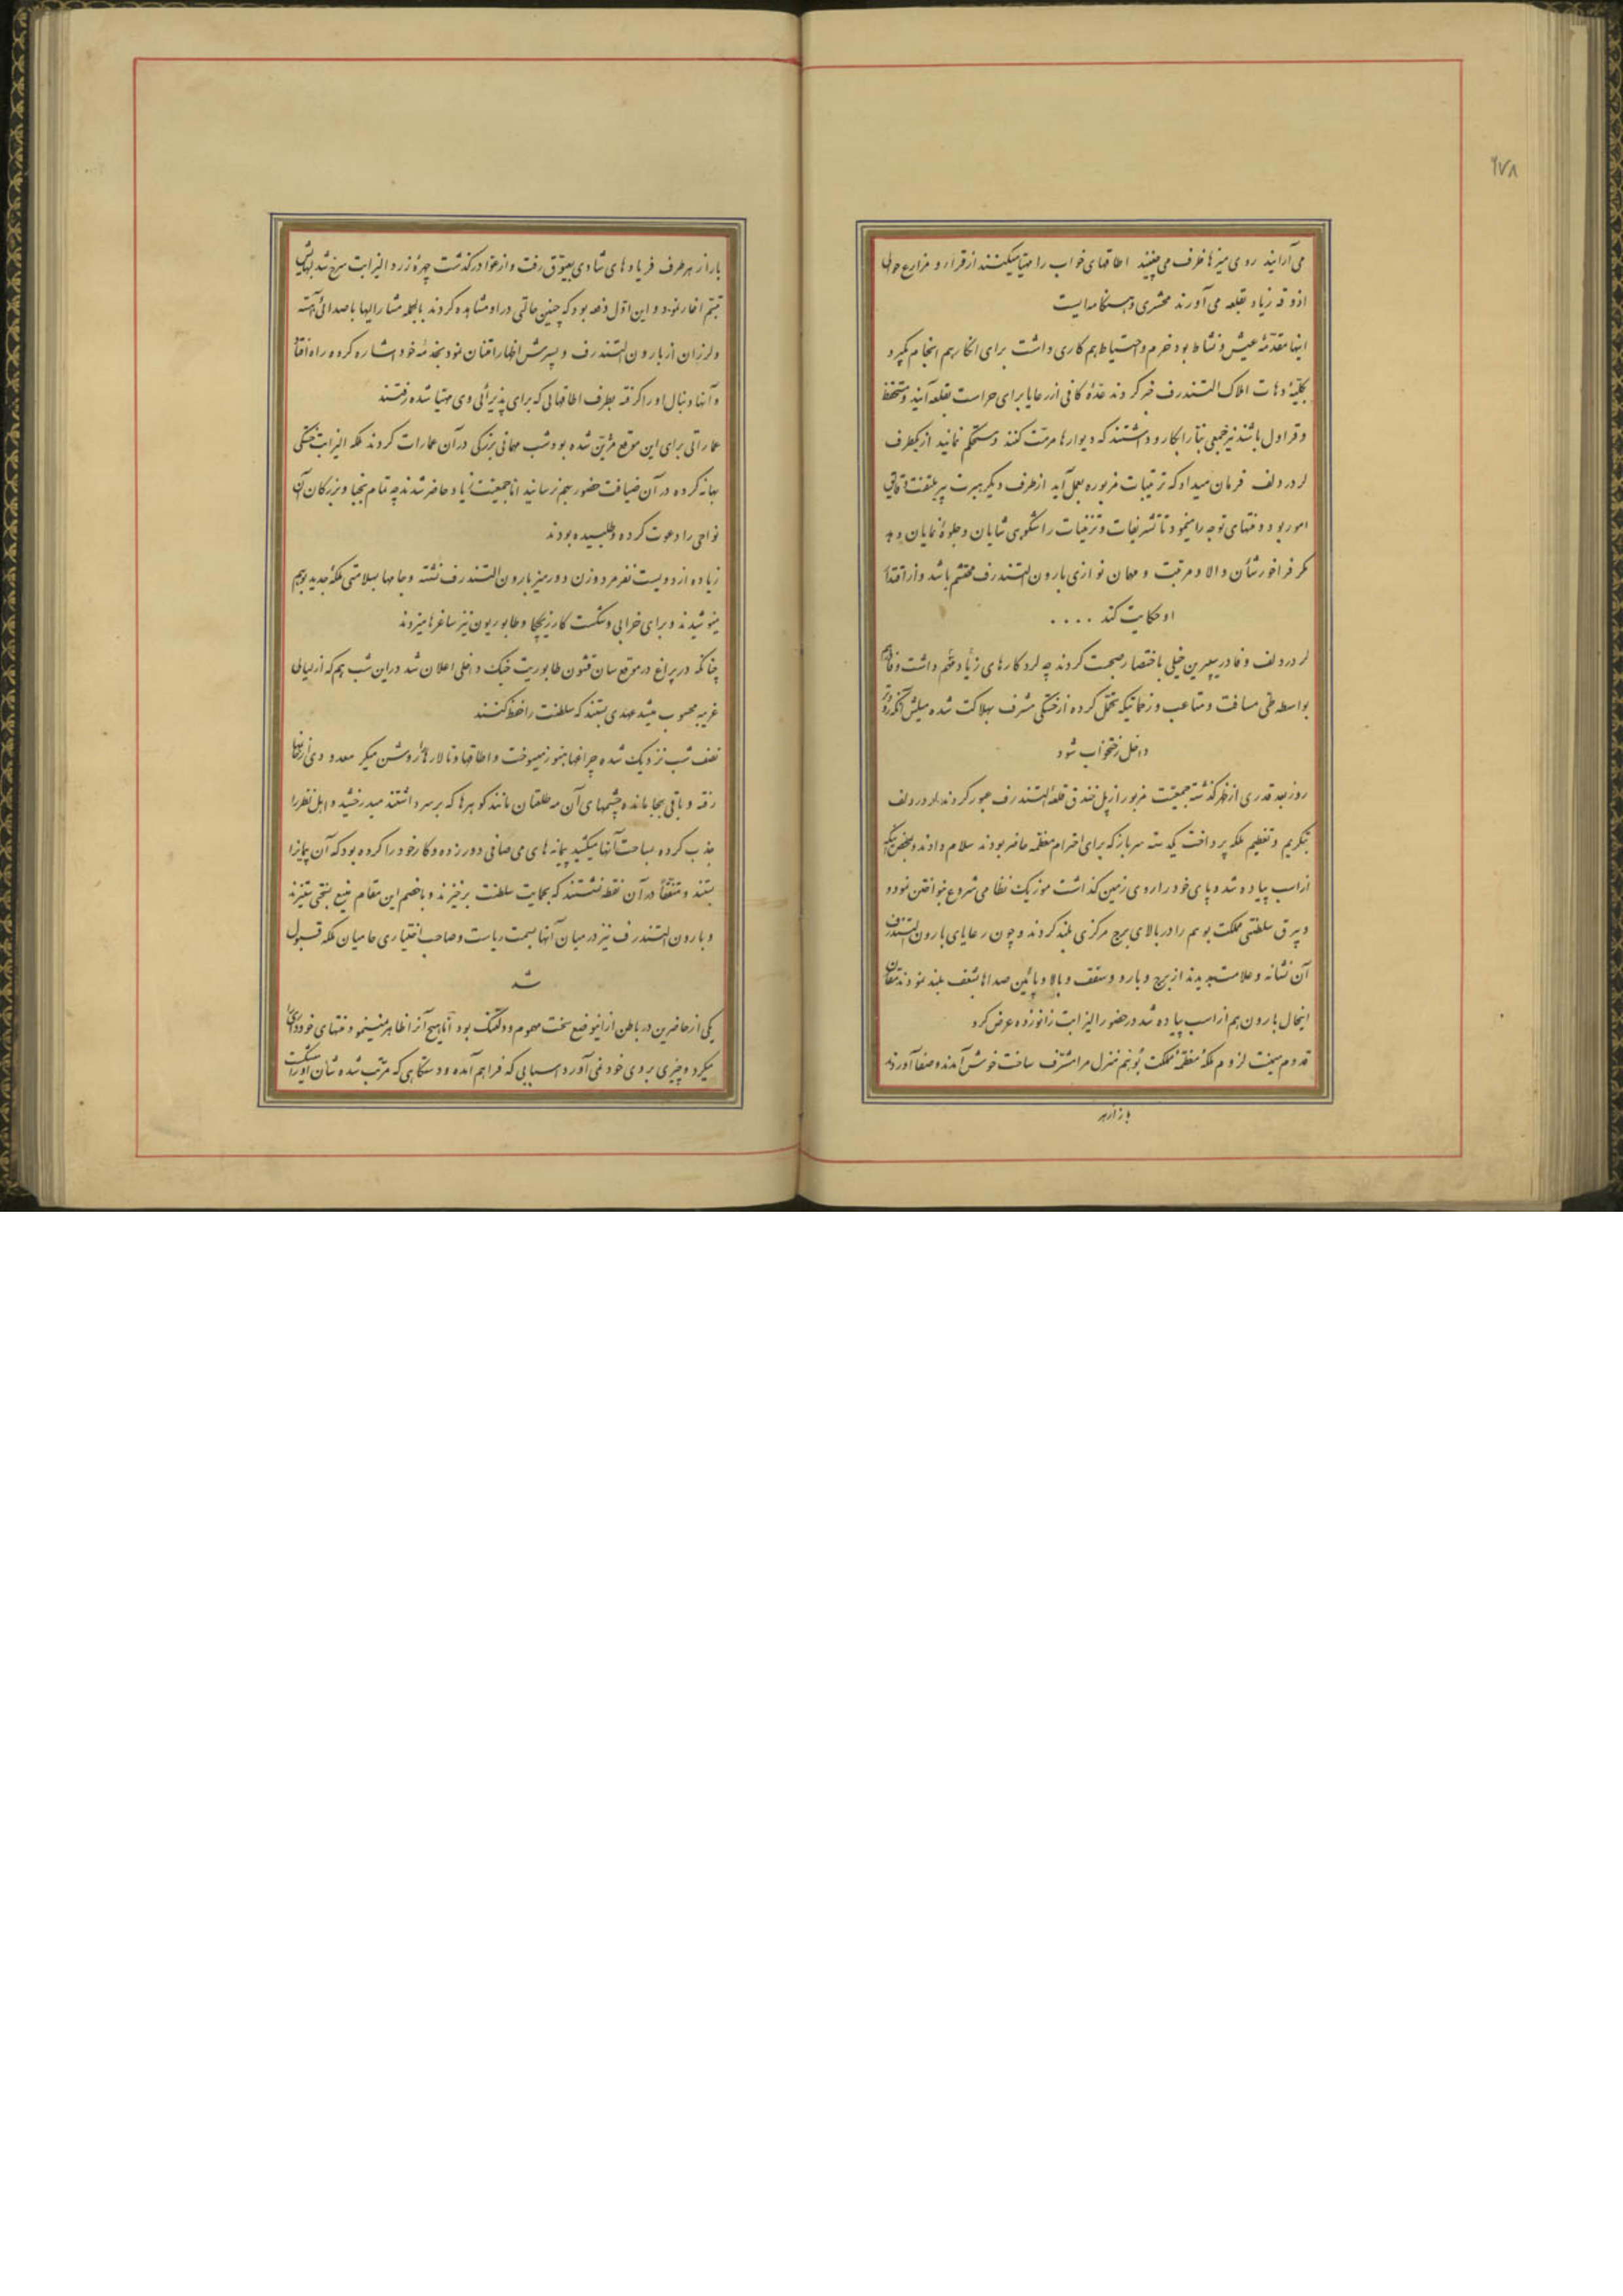 ۶۷۸
می‌آرایند روی میزها ظرف می‌چینند اطاقهای خواب را مهیا میکنند از قراء و مزارع حوالی
اذوقه زیاد بقلعه می‌آورند محشری و هنگامه ایست
اینها مقدمهٔ عیش و نشاط بود حزم و احتیاط هم کاری داشت برای آنکار هم انجام بگیرد
بکلیهٔ دهات املاک التندرف خبر کردند عدهٔ کافی از رعایا برای حراست بقلعه آیند و مستحفظ
و قراول باشند نیز جمعی بنا را بکار وا داشتند که دیوارها مرمت کنند و مستحکم نمایند از یکطرف
لرد ردلف فرمان میداد که ترتیبات مزبوره بعمل آید از طرف دیگر میرت پیر ملتفت دقایق
امور بود و منتهای توجه را مینمود تا تشریفات و تزئینات را شکوهی شایان و جلوهٔ نمایان دهد
مگر فراخور شأن والا و مرتبت و مهمان نوازی بارون التندرف محتشم باشد و از اقتدار
او حکایت کند . . . .
لرد ردلف و فادر سپرین خیلی باختصار صحبت کردند چه لرد کارهای زیاد مهم داشت و فادر هم
بواسطه طی مسافت و متاعب و زحماتیکه تحمل کرده از خستگی مشرف بهلاکت شده میلش آنکه زودتر
داخل رختخواب شود
روز بعد قدری از ظهر گذشته جمعیت مزبور از پل خندق قلعهٔ التندرف عبور کردند لرد ردلف
بتکریم و تعظیم ملکه پرداخت یکدسته سرباز که برای احترام معظمه حاضر بودند سلام دادند و بمحض اینکه
از اسب پیاده شد و پای خود را روی زمین گذاشت موزیک نظامی شروع بنواختن نمود و
و بیرق سلطنتی مملکت بوهم را در بالای برج مرکزی بلند کردند و چون رعایای بارون التندرف
آن نشانه و علامت بدیدند از برج و بارو و سقف و بالا و پائین صداها بشعف بلند نمودند مقارن
اینحال بارون هم از اسب پیاده شد در حضور الیزابت زانو زده عرض کرد
قدوم میمنت لزوم ملکهٔ معظمهٔ مملکت بوهم منزل مرا مشرف ساخت خوش آمدند و صفا آوردند
باز از هر
باز از هر طرف فریادهای شادی بعیوق رفت و از هوا درگذشت چهرهٔ زرد الیزابت سرخ شد لبهایش
تبسم اظهار نمود و این اول دفعه بود که چنین حالتی در او مشاهده کردند بالجمله مشارالیها با صدائی آهسته
و لرزان از بارون التندرف و پسرش اظهار امتنان نمود بخدمهٔ خود اشاره کرده راه افتاد
و آنها دنبال او را گرفته بطرف اطاقهایی که برای پذیرائی وی مهیا شده رفتند
عماراتی برای این موقع مزین شده بود شب مهمانی بزرگی در آن عمارات کردند ملکه الیزابت خستگی
بهانه کرده در آن ضیافت حضور بهم نرسانید اما جمعیت زیاد حاضر شدند چه تمام نجبا و بزرگان آن
نواحی را دعوت کرده و طلبیده بودند
زیاده از دویست نفر مرد و زن دور میز بارون التندرف نشسته و جامها بسلامتی ملکهٔ جدید بوهم
مینوشیدند و برای خرابی و شکست کار زیچکا و طابوریون نیز ساغرها میزدند
چنانکه در پراغ در موقع سان قشون طابوریت جنگ داخلی اعلان شد در این شب هم که از لیالی
غریبه محسوب میشد عهدی بستند که سلطنت را حفظ کنند
نصف شب نزدیک شده چراغها هنوز میسوخت و اطاقها و تالارها را روشن میکرد معدودی از زنها
رفته و باقی بجا مانده چشمهای آن مه طلعتان مانند گوهرها که بر سر داشتند میدرخشید و اهل نظر را
جذب کرده بساحت آنها میکشید پیمانه‌های می صافی دور زده و کار خود را کرده بود که آن پیمانرا
بستند و متفقاً در آن نقطه نشستند که بحمایت سلطنت برخیزند و با خصم این مقام منیع بسختی بستیزند
و بارون التندرف نیز در میان آنها بسمت ریاست و صاحب اختیاری حامیان ملکه قبول
شد
یکی از حاضرین در باطن از اینوضع سخت مهموم و دلتنگ بود اما هیچ آنرا ظاهر نمینمود و منتهای خودداری را
میکرد و چیزی بروی خود نمی‌آورد اسبابی که فراهم آمده و دستگاهی که مرتب شده شأن او را میشکست